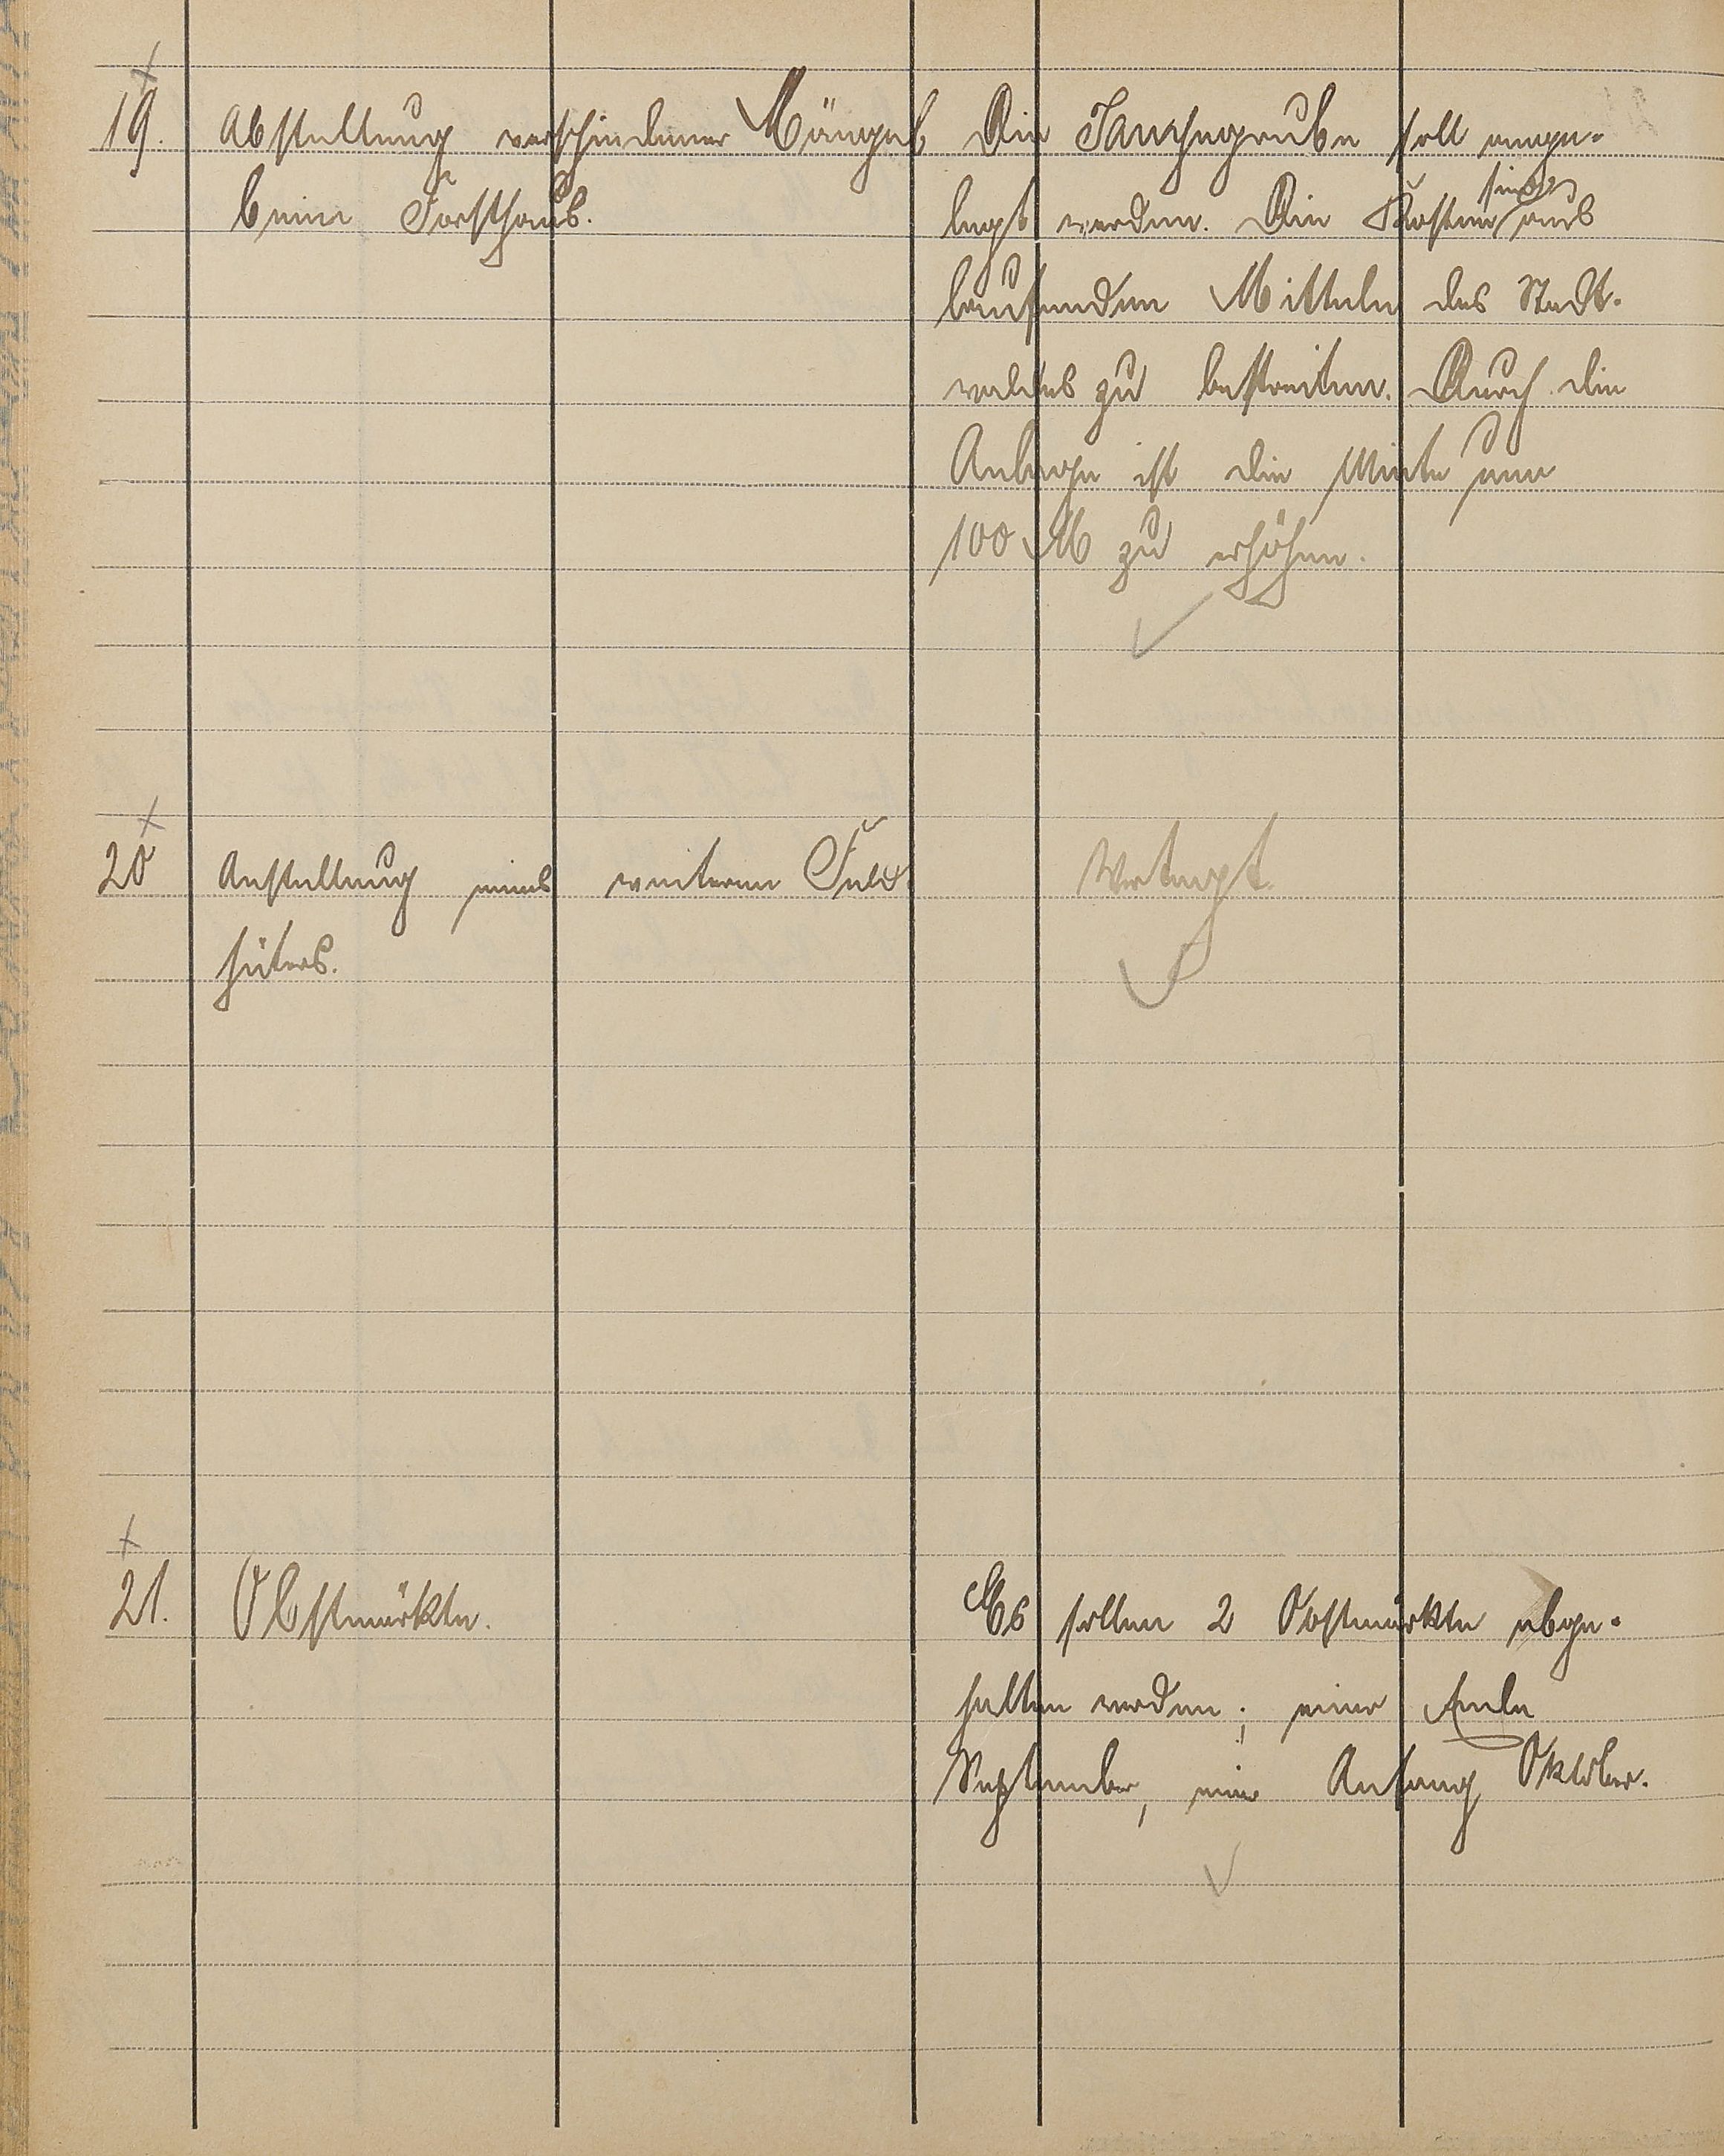 19. Abstellung verschiedener Mängel
beim Forsthaus.
Die Jauchegrube soll ange-
legt werden. Die Kosten sind aus
laufenden Mitteln des Stadt-
waldes zu bestreiten. Durch die
Anlage ist die Miete um
100 M zu erhöhen.
20 Anstellung eines weiteren Feld-
hüters.
Vertagt.
21. Obstmärkte.
Es sollen 2 Obstmärkte abge-
halten werden; einer Ende
September, einer Anfang Oktober.